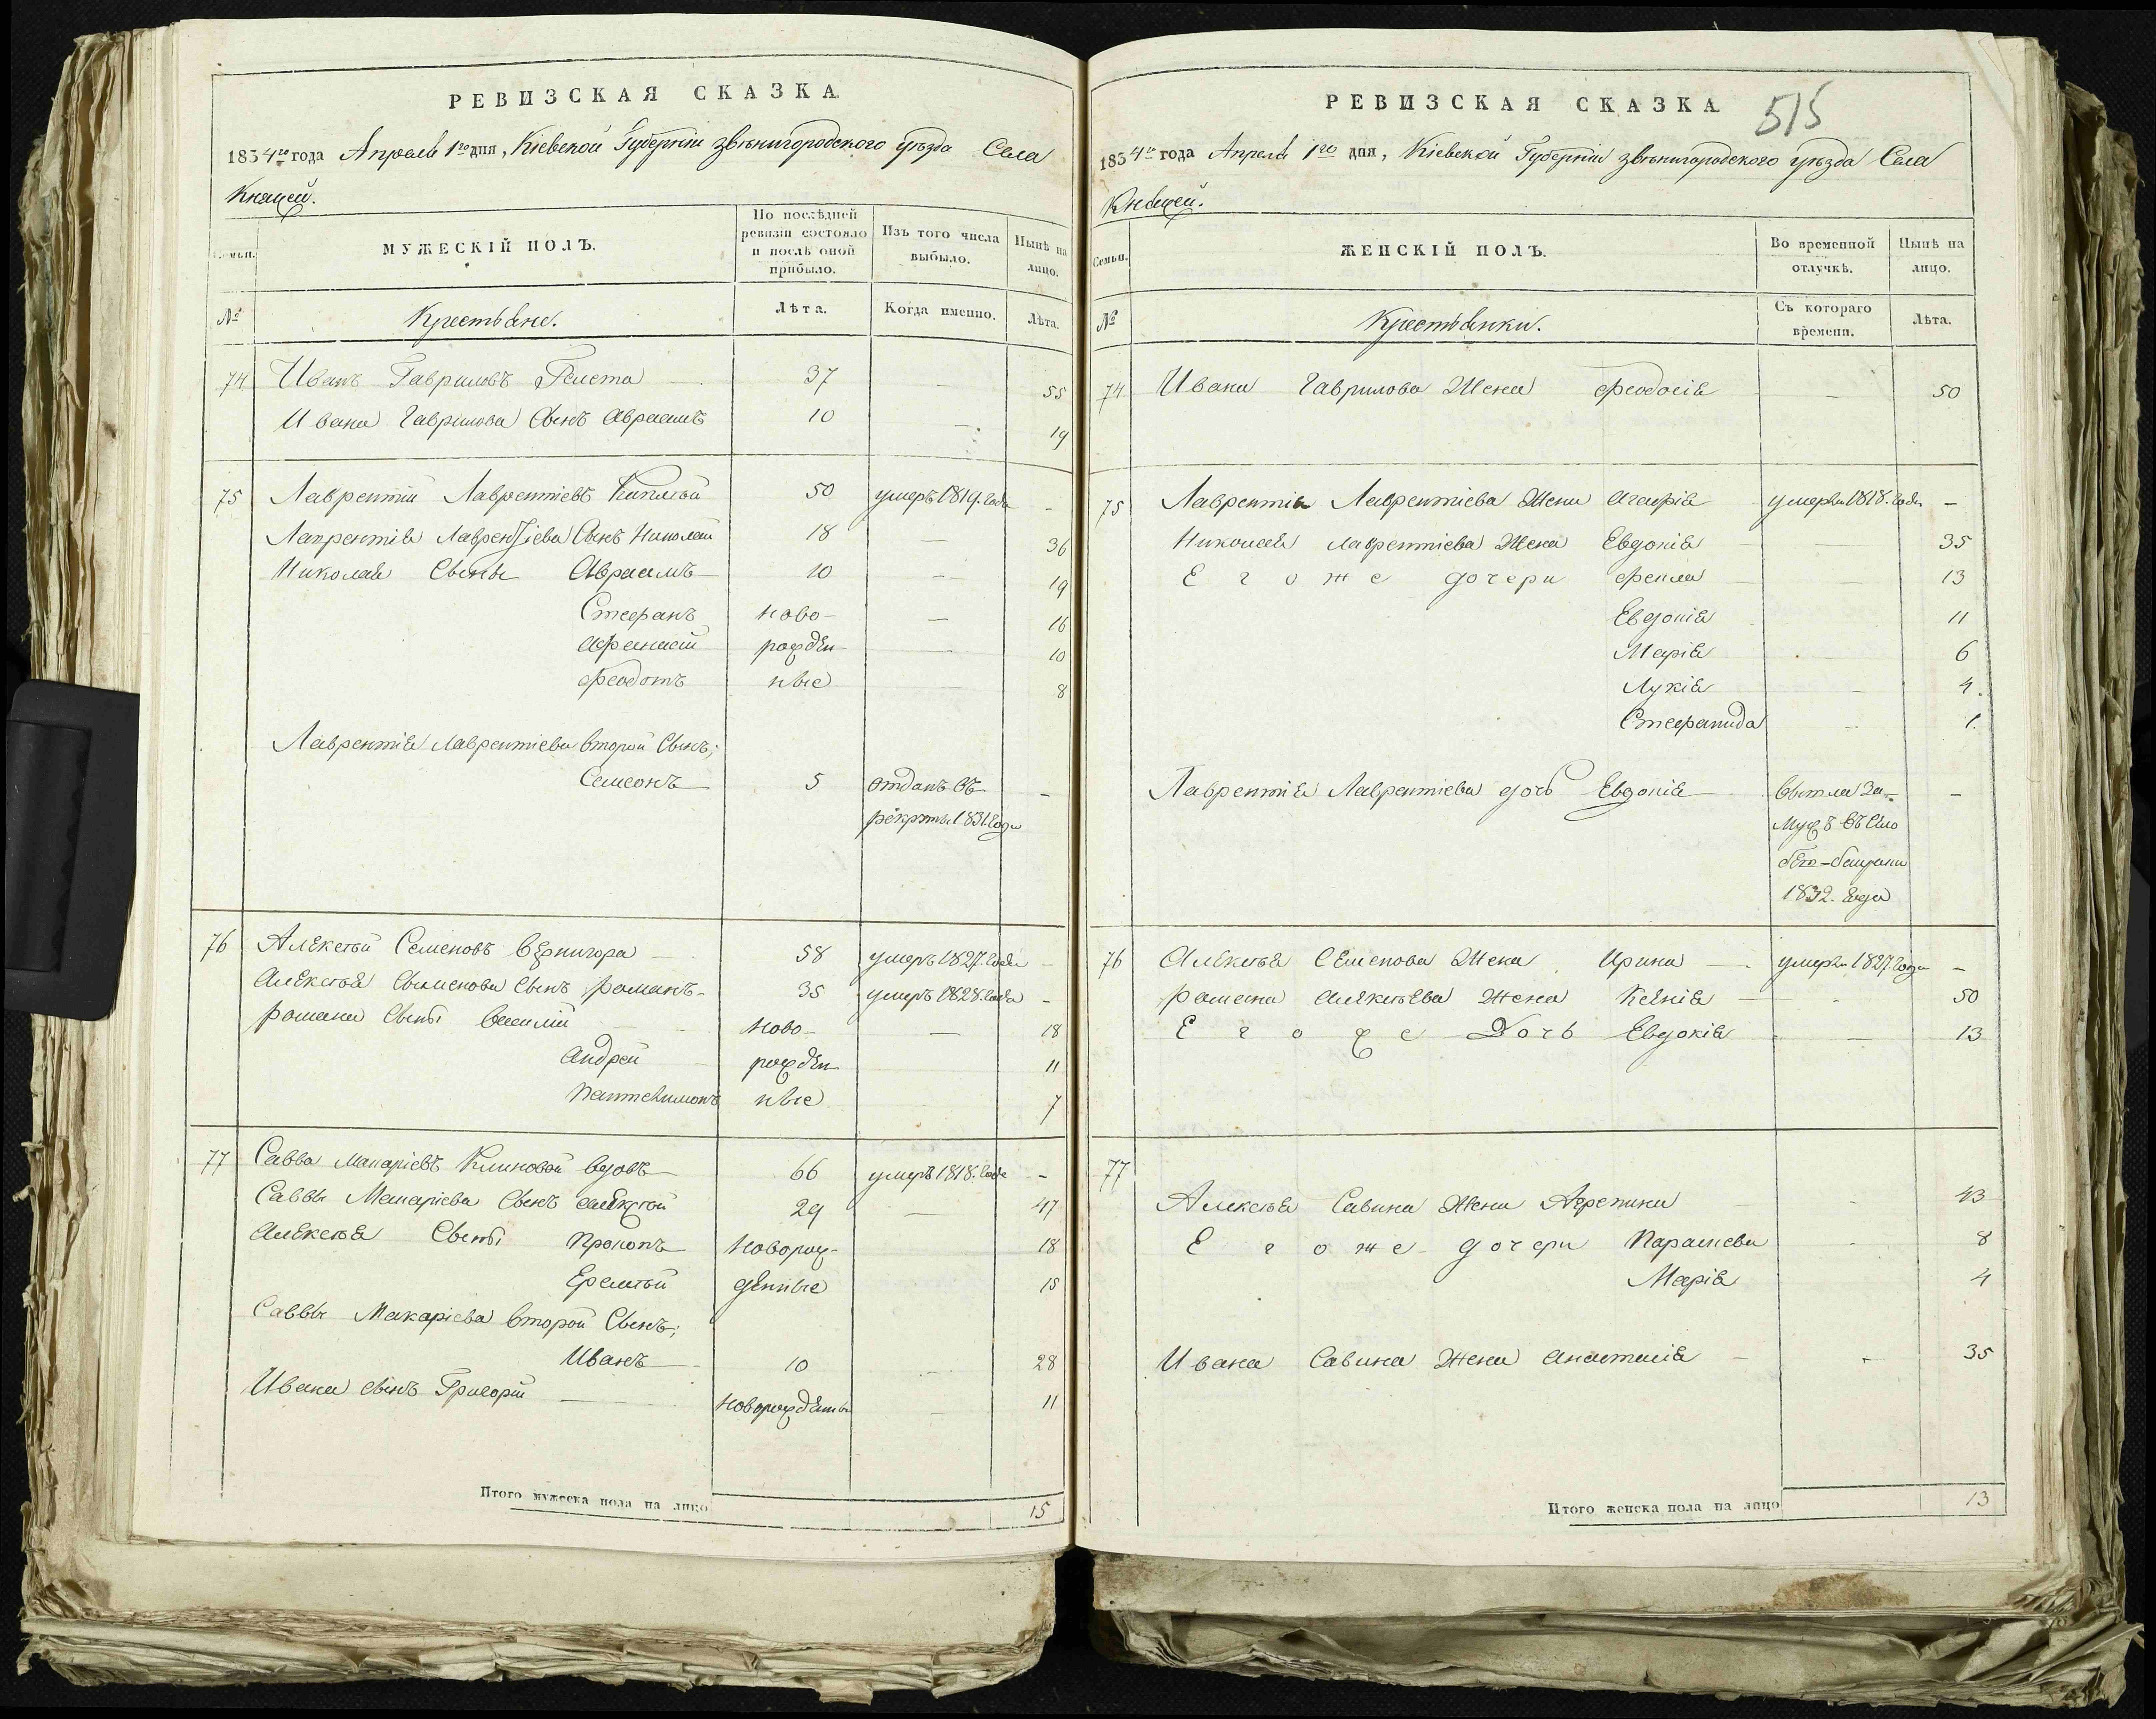 РЕВИЗСКАЯ СКАЗКА
1834го года Апреля 1го дня, Кіевской Губерніи звѣнигородского уѣзда Села
Княжей.
Семьи.
МУЖЕСКІЙ ПОЛЪ.
По послѣдней ревизіи состояло и послѣ оной прибыло.
Изъ того числа выбыло.
Нынѣ на лицо.
№
Крестьяне.
Лѣта.
Когда именно.
Лѣта.
74 Иванъ Гавриловъ 37 55
Ивана Гаврилова Сынъ Авраамъ 10 — 19
75 Лаврентій Лаврентіевъ 50 умеръ 1819. года -
Лаврентія Лаврентіева Сынъ Николай 18 — 36
Николая Сыны Авраамъ 10 — 19
Стефанъ ново- — 16
Афанасій рожден- — 10
Феодотъ ные 8
Лаврентія Лаврентіева второй Сынъ;
Семеонъ 5 отданъ въ -
рекруты 1831. года
76 Алексѣй Семеновъ Вернигора — 58 умеръ 1827. года -
Алексѣя Семенова Сынъ романъ - 35 умеръ 1828. года -
романа Сыны Василій ново- — 18
Андрей рожден- 11
Пантелимонъ ные 7
77 Савва Макаріевъ вдовъ 66 умеръ 1818. года -
Саввы Макаріева Сынъ Алексѣй 29 — 47
Алексѣя Сыны Прокопъ новорож- 18
Еремѣй денные 15
Саввы Макаріева второй Сынъ;
Иванъ 10 — 28
Ивана сынъ Григорій — новорожденны — 11
Итого мужеска пола на лицо 15
РЕВИЗСКАЯ СКАЗКА
515
1834го года Апреля 1го дня, Кіевской Губерніи звѣнигородского уѣзда Села
Княжей.
Семьи.
ЖЕНСКІЙ ПОЛЪ.
Во временной отлучкѣ.
Нынѣ на лицо.
№
Крестьянки.
Съ котораго времени.
Лѣта.
74 Ивана Гаврилова Жена Феодосія — 50
75 Лаврентія Лаврентіева Жена Агафія умерла 1818. года —
Николая Лаврентіева Жена Евдокія — 35
Егоже дочери Фекла — 13
Евдокія 11
Марія 6
Лукія — 4.
Стефанида 1.
Лаврентія Лаврентіева дочь Евдокія вышла за- —
Мужъ въ село
1832. года
76 Алексѣя Семенова Жена Ирина — умерла 1827. года —
романа Алексѣева Жена Ксенія — 50
Егоже Дочь Евдокія — 13
77
Алексѣя Савина Жена Агрепина 43
Егоже дочери Параскева 8
Марія 4
Ивана Савина Жена Анастасія — 35
Итого женска пола на лицо 13